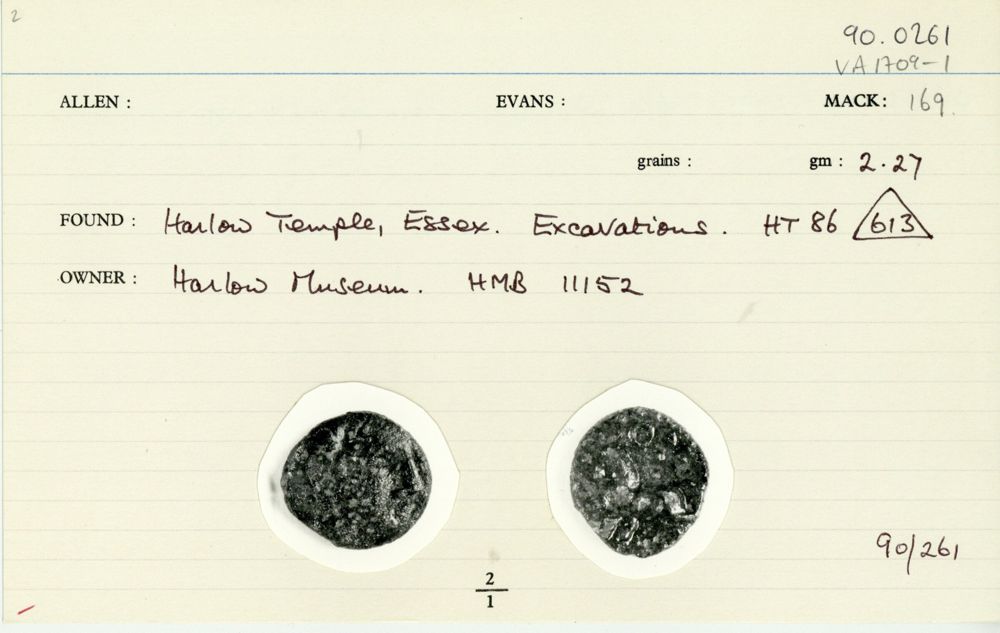 2
90.0261
VA1709-1
ALLEN : EVANS : MACK: 169.
grains : gm : 2.27
FOUND : Harlow Temple, Essex. Excavations. HT 86 613
OWNER : Harlow Museum. HMB 11152
90/261
2
1